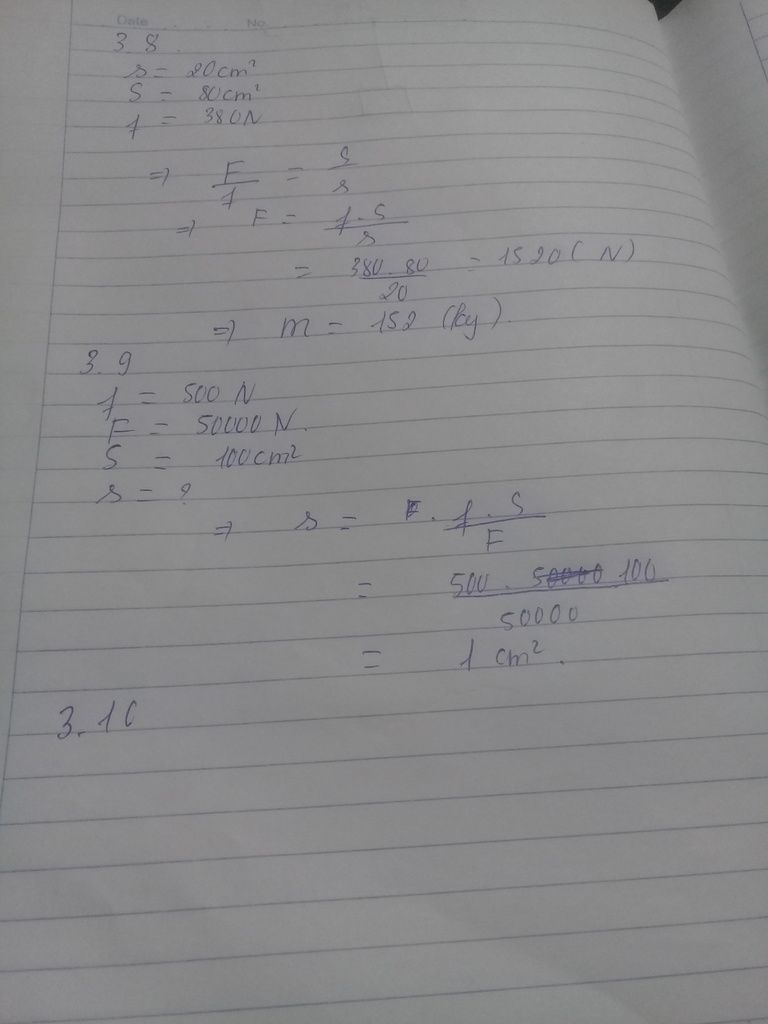 Date No
3.8
s = 20cm²
S = 80cm²
f = 380N
=> F/f = S/s
=> F = f.S/s
= 380.80/20 = 1520 (N)
=> m = 152 (kg).
3.9
f = 500 N
F = 50000 N.
S = 100cm²
s = ?
=> s = f.S/F
= 500 . 100/50000
= 1 cm².
3.10